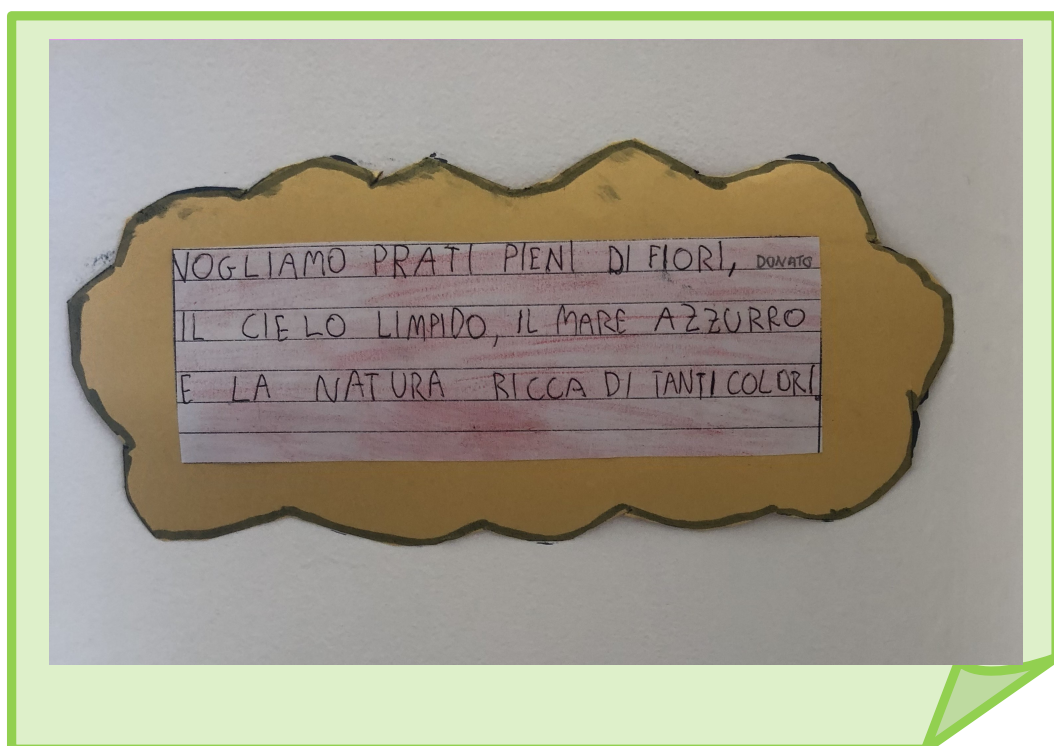 VOGLIAMO PRATI PIENI DI FIORI, DONATO
IL CIELO LIMPIDO, IL MARE AZZURRO
E LA NATURA RICCA DI TANTI COLORI.